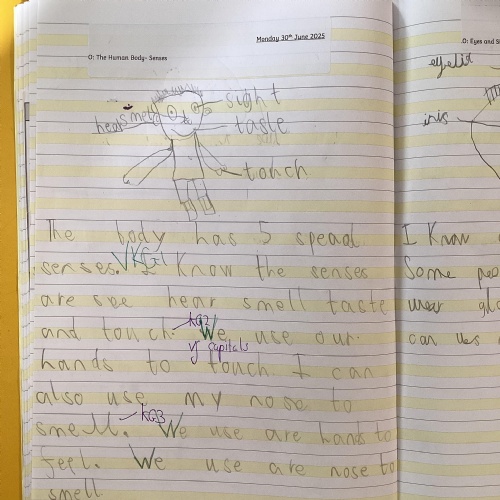 Monday 30th June 2025
O: The Human Body- Senses
sight
smell
hear
taste
touch
The body has 5 spead
senses. I know the senses
are see hear smell taste
and touch. We use our
capitals
hands to touch I can
also use my nose to
smell. We use are hands to
feel. We use are nose to
smell
O: Eyes and Si
eyelid
iris
I know
Some peo
wear gla
can